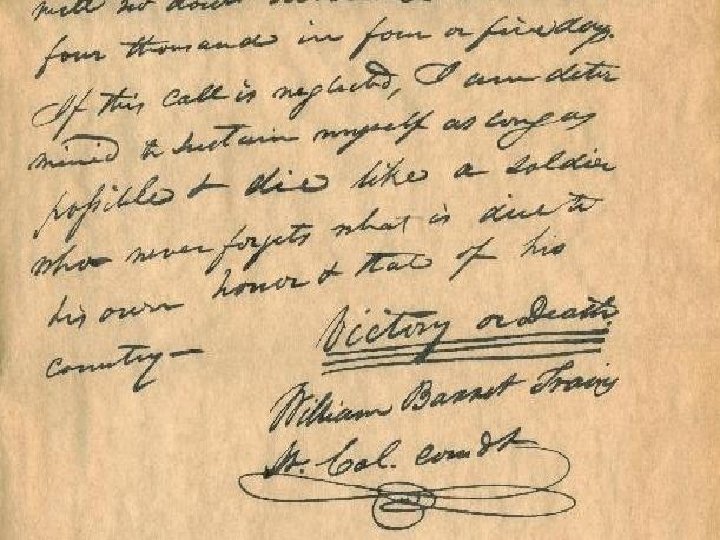 will no doubt
four thousand in four or five days.
If this call is neglected, I am deter
mined to sustain myself as long as
possible & die like a soldier
who never forgets what is due to
his own honor & that of his
country —
Victory or Death
William Barret Travis
Lt. Col. comdt